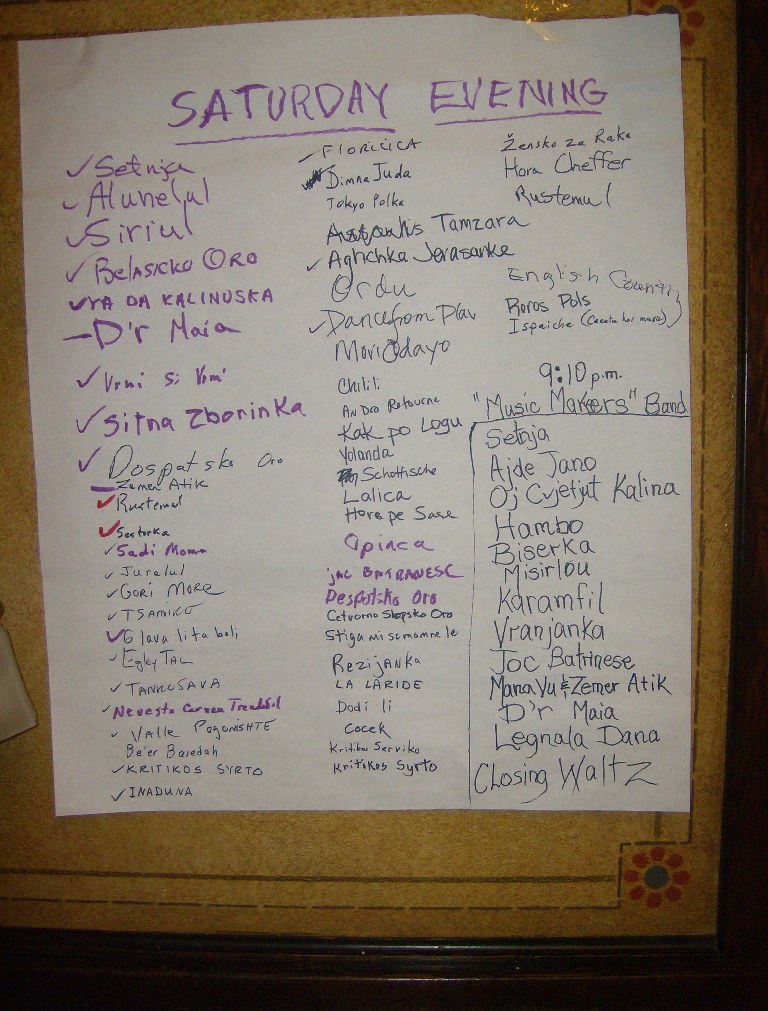 SATURDAY EVENING
Setnja
Alunelul
Siriul
Belasicko Oro
YA DA KALINUSKA
D'r Maia
Vrni Si Vrni
Sitna Zborinka
Dospatsko Oro
Zemer Atik
Rustemul
Sestorka
Sadi Moma
Jurelul
Gori More
TSAMIKO
Glava lita boli
TANKOSAVA
Nevesto Cerven Trendafil
Valle Pogonishte
Be'er Basedah
KRITIKOS SYRTO
INADUNA
FIORICICA
Dimna Juda
Tokyo Polka
Tamzara
Aghchka Jerasanke
Ordu
Dance from Plav
Mori Odayo
Chilili
An Dro Retourne
Kak po Logu
Yolanda
Schottische
Lalica
Hora pe Sase
Opinca
JOC BATRANESC
Despotsko Oro
Cetvorno Shopsko Oro
Rezijanka
LA LARIDE
Dodi li
Cocek
Kritikos Serviko
Kritikos Syrto
Žensko za Raka
Hora Cheffer
Rustemul
English Country
Roros Pols
Ispaiche
9:10 p.m.
"Music Makers" Band
Setnja
Ajde Jano
Oj Cvjetjut Kalina
Hambo
Biserka
Misirlou
Karamfil
Vranjanka
Joc Batrinese
Mana Vu & Zemer Atik
D'r Maia
Legnala Dana
Closing Waltz